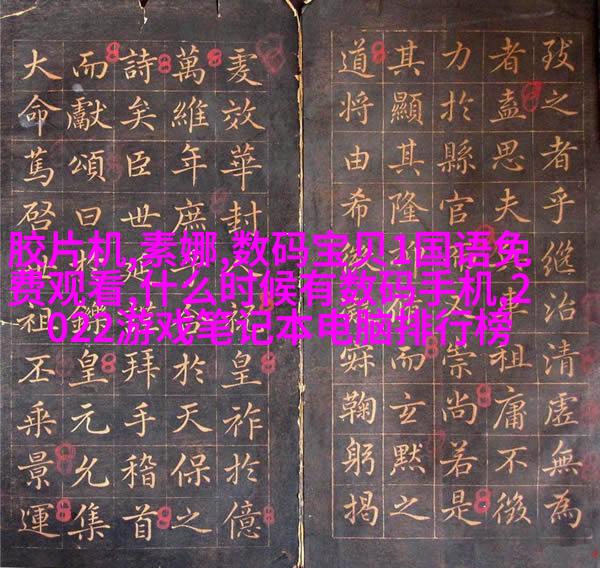 致之者乎継治清虚無為
者盍思夫車祖庸不徴
力於縣官又崇尚若是
其顯其隆師而玄默之
道將由希辭鞠躬揭
爰效華封祝皇祚於億
萬維年庶於天保之
詩矣臣世拜手稽首
而獻頌曰樂皇元允集
大命篤啓世祖丕乘景運
胶片机,素娜,数码宝贝1国语免
费观看,什么时候有数码手机,2
022游戏笔记本电脑排行榜